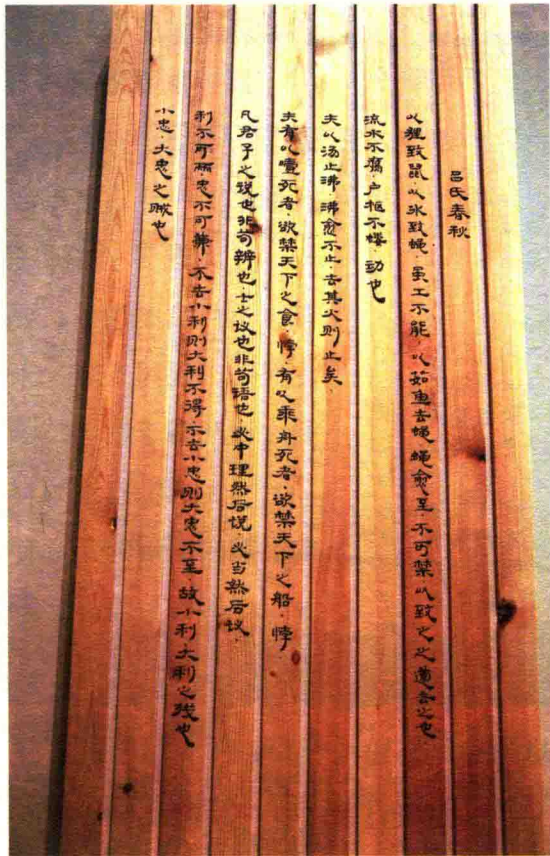 吕氏春秋
以狸致鼠·以冰致蝇·虽工不能·以茹鱼去蝇·蝇愈至·不可禁·以致之之道去之也
流水不腐·户枢不蝼·动也
夫以汤止沸·沸愈不止·去其火则止矣·
夫有以噎死者·欲禁天下之食·悖·有以乘舟死者·欲禁天下之船·悖
凡君子之说也非苟辨也·士之议也非苟语也·必中理然后说·必当然后议·
利不可两·忠不可兼·不去小利则大利不得·不去小忠则大忠不至·故小利·大利之残也
小忠·大忠之贼也